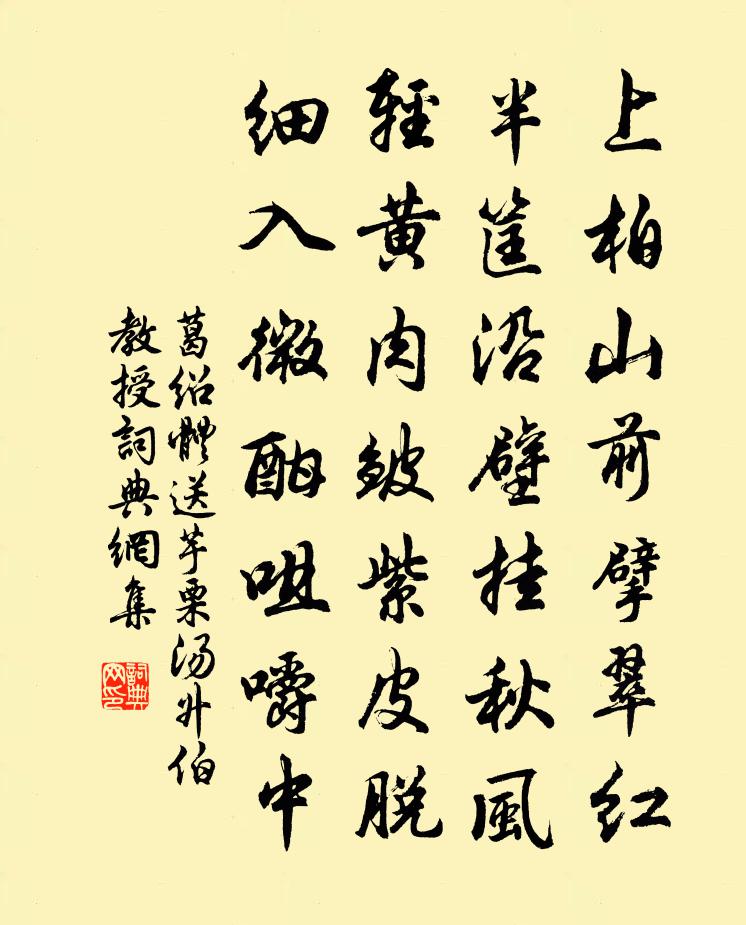 上柏山前擘翠红
半筐沿壁挂秋風
輕黄肉皴紫皮脱
细入微酣咀嚼中
葛绍體送芋栗汤升伯
教授詞典網集
詞典網印